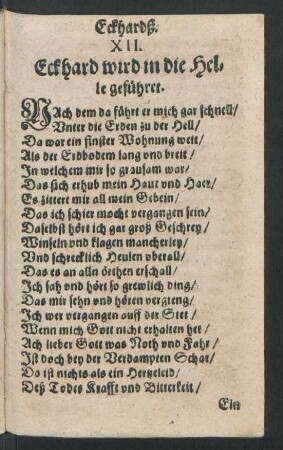 Eckhardß.
XII.
Eckhard wird in die Hel-
le geführet.
NAch dem da führt er mich gar schnell/
Vnter die Erden zu der Hell/
Da war ein finster Wohnung weit/
Als der Erdbodem lang vnd breit/
In welchem mir so grausam war/
Das sich erhub mein Haut vnd Haer/
Es zittert mir all mein Gebein/
Das ich schier mocht vergangen sein/
Daselbst hört ich gar groß Geschrey/
Winseln vnd klagen mancherley/
Vnd schrecklich Heulen vberall/
Das es an alln örthen erschall/
Ich sah vnd hört so grewlich ding/
Das mir sehn vnd hören vergieng/
Ich wer vergangen auff der Stet/
Wenn mich Gott nicht erhalten het/
Ach lieber Gott was Noth vnd Fahr/
Ist doch bey der Verdampten Schar/
Da ist nichts als ein Hertzeleid/
Deß Todes Krafft vnd Bitterkeit/
Ein